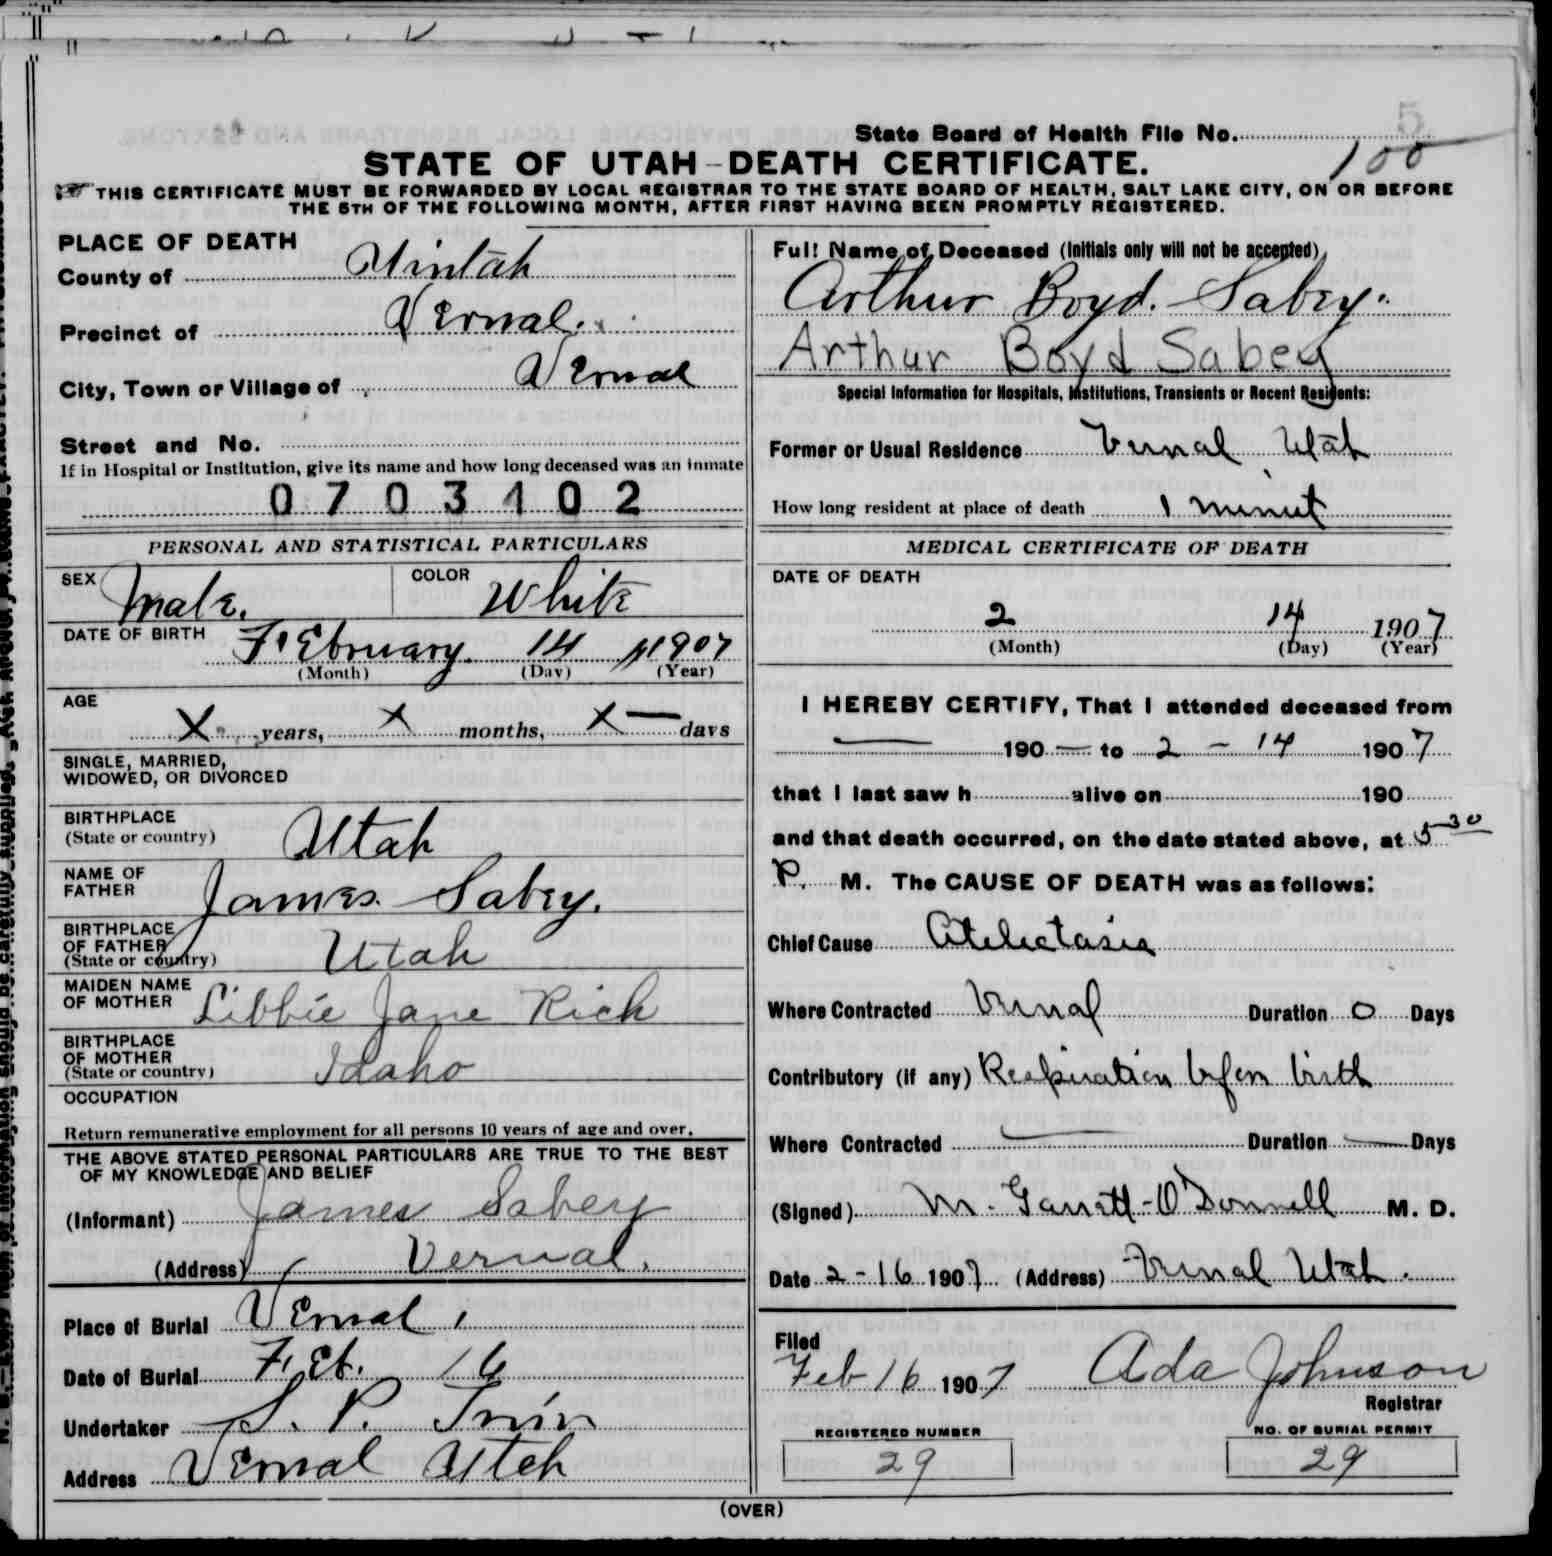 State Board of Health File No. 100
5
STATE OF UTAH-DEATH CERTIFICATE.
THIS CERTIFICATE MUST BE FORWARDED BY LOCAL REGISTRAR TO THE STATE BOARD OF HEALTH, SALT LAKE CITY, ON OR BEFORE
THE 5TH OF THE FOLLOWING MONTH, AFTER FIRST HAVING BEEN PROMPTLY REGISTERED.
PLACE OF DEATH
County of Uintah
Precinct of Vernal.
City, Town or Village of Vernal
Street and No.
If in Hospital or Institution, give its name and how long deceased was an inmate
0703102
PERSONAL AND STATISTICAL PARTICULARS
SEX Male. COLOR White
DATE OF BIRTH February 14 1907
(Month) (Day) (Year)
AGE
X years, X months, X — days
SINGLE, MARRIED,
WIDOWED, OR DIVORCED
BIRTHPLACE
(State or country) Utah
NAME OF
FATHER James Sabey.
BIRTHPLACE
OF FATHER
(State or country) Utah
MAIDEN NAME
OF MOTHER Libbie Jane Rich
BIRTHPLACE
OF MOTHER
(State or country) Idaho
OCCUPATION
Return remunerative employment for all persons 10 years of age and over.
THE ABOVE STATED PERSONAL PARTICULARS ARE TRUE TO THE BEST
OF MY KNOWLEDGE AND BELIEF
(Informant) James Sabey
(Address) Vernal.
Place of Burial Vernal,
Date of Burial Feb. 16
Undertaker S. P.
Address Vernal Utah
Full Name of Deceased (Initials only will not be accepted)
Arthur Boyd. Sabey.
Arthur Boyd Sabey
Special Information for Hospitals, Institutions, Transients or Recent Residents:
Former or Usual Residence Vernal, Utah
How long resident at place of death 1 minut
MEDICAL CERTIFICATE OF DEATH
DATE OF DEATH
2 14 1907
(Month) (Day) (Year)
I HEREBY CERTIFY, That I attended deceased from
— 190 — to 2 - 14 1907
that I last saw h alive on 190
and that death occurred, on the date stated above, at 5 30
P. M. The CAUSE OF DEATH was as follows:
Chief Cause Atelectasia
Where Contracted Vernal Duration 0 Days
Contributory (if any) Respiration before birth
Where Contracted — Duration — Days
(Signed) M. Garrett-O'Donnell M. D.
Date 2-16 1907. (Address) Vernal Utah.
Filed
Feb 16 1907 Ada Johnson
Registrar
REGISTERED NUMBER NO. OF BURIAL PERMIT
29 29
(OVER)